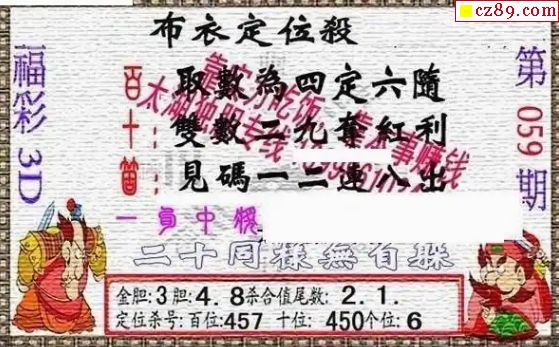 cz89.com
布衣定位殺
福彩3D
第059期
百十個
取數為四定六隨
雙數二九奪紅利
見碼一二連八出
一身中機
二十同樣無有躲
金胆:3胆:4.8杀合值尾数:2.1.
定位杀号:百位:457 十位:450个位:6